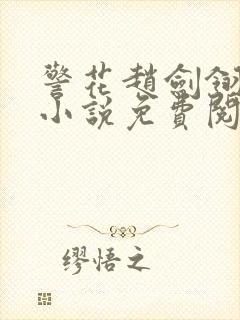 警花趙劍翎
小說免費閱
缪悟之